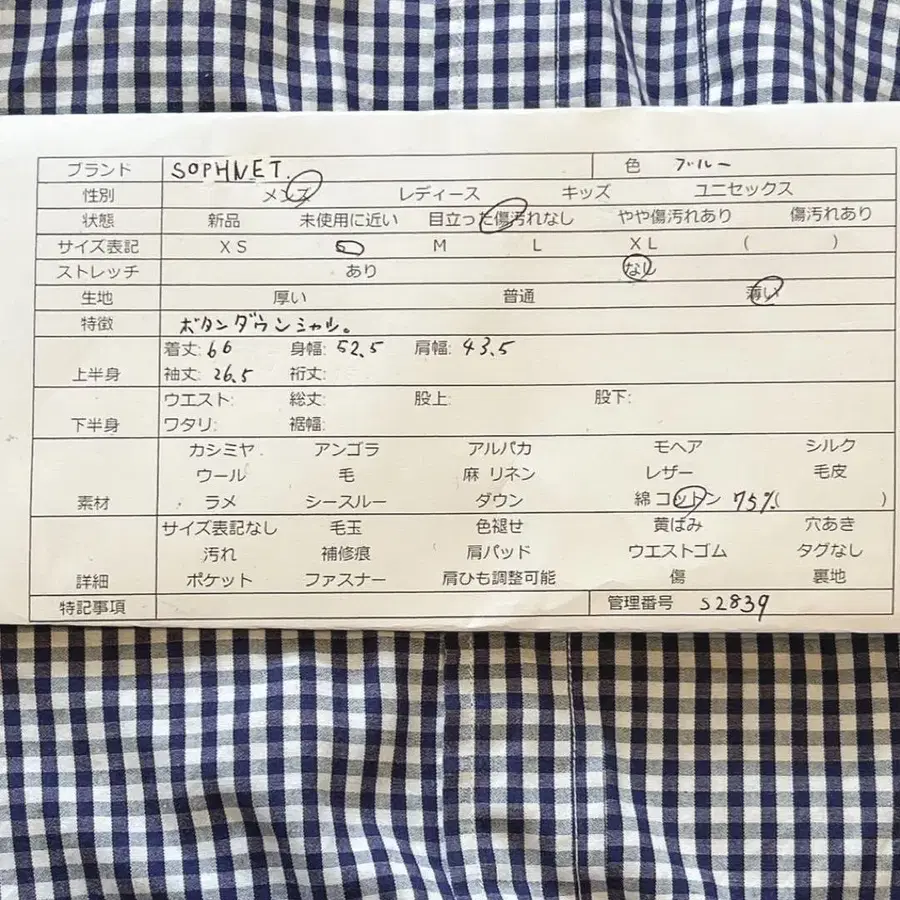 ブランド SOPHNET. 色 ブルー
性別 メンズ レディース キッズ ユニセックス
状態 新品 未使用に近い 目立った傷汚れなし やや傷汚れあり 傷汚れあり
サイズ表記 XS S M L XL ( )
ストレッチ あり なし
生地 厚い 普通 薄い
特徴 ボタンダウンシャツ。
着丈: 66 身幅: 52.5 肩幅: 43.5
上半身 袖丈: 26.5 裄丈:
ウエスト: 総丈: 股上: 股下:
下半身 ワタリ: 裾幅:
カシミヤ アンゴラ アルパカ モヘア シルク
ウール 毛 麻 リネン レザー 毛皮
素材 ラメ シースルー ダウン 綿 コットン 75%( )
サイズ表記なし 毛玉 色褪せ 黄ばみ 穴あき
汚れ 補修痕 肩パッド ウエストゴム タグなし
詳細 ポケット ファスナー 肩ひも調整可能 傷 裏地
特記事項 管理番号 S2839